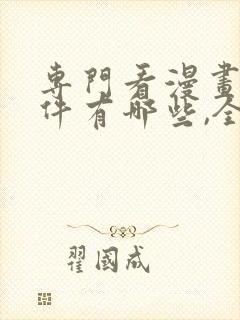 專門看漫畫
件有哪些,全
翟國成